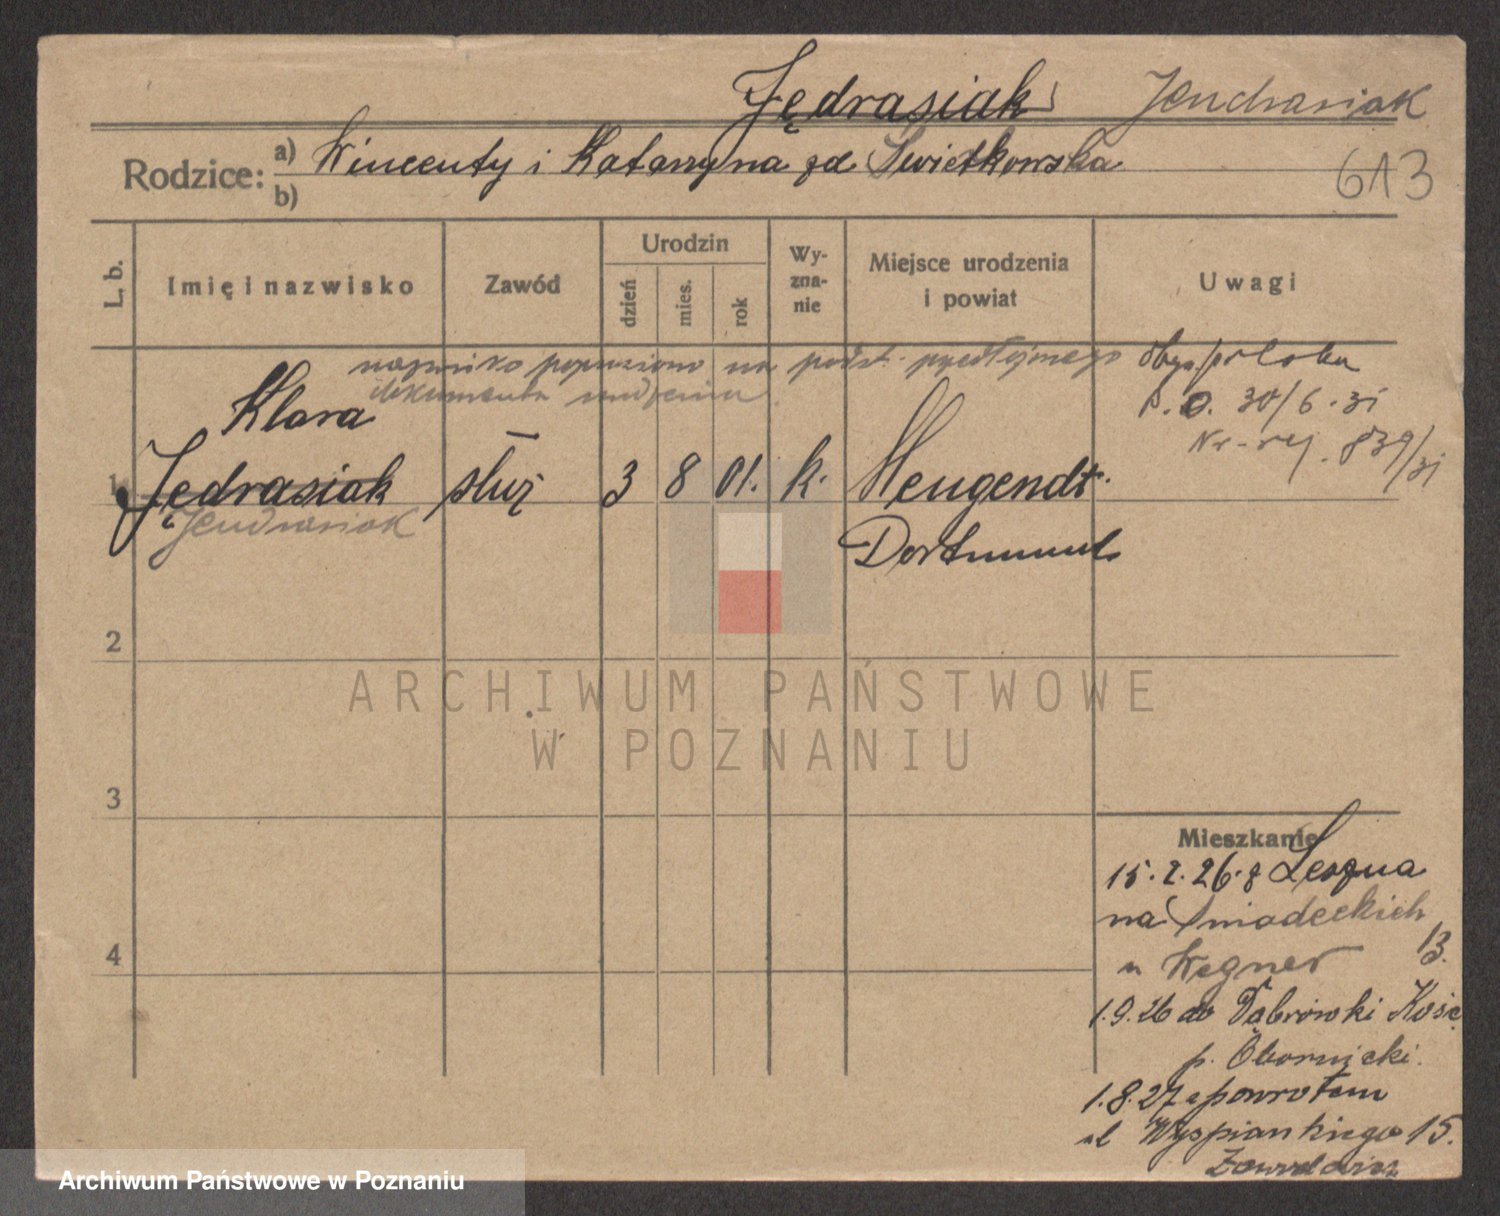 Jędrasiak Jendrasiak
Rodzice: a) Wincenty i Katarzyna zd Świetkowska
b)
613
L. b. Imię i nazwisko Zawód Urodzin dzień mies. rok Wyznanie Miejsce urodzenia i powiat Uwagi
nazwisko poprawiono na podst. przedłożonego
dokumentu urodzenia
obyw. polska
P.O. 30/6.31
Nr. rej. 839/31
Klara
1 Jędrasiak służ 3 8 01. k. Mengendt
Jendrasiak
Dortmund
2
3
4
Mieszkanie
15.2.26 z Leszna
na Śniadeckich
13.
u Wegner
1.9.26 do Dąbrówki Kośc
p. Obornicki.
1.8.27 z powrotem
ul Wyspiańskiego 15.
ARCHIWUM PAŃSTWOWE
W POZNANIU
Archiwum Państwowe w Poznaniu